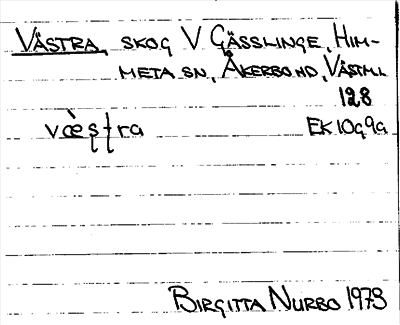 VÄSTRA, SKOG V GÄSSLINGE, HIM-
META SN, ÅKERBO HD, VÄSTM.L
128
væ̀ʂʈra EK 10G9a
BIRGITTA NURBO 1973